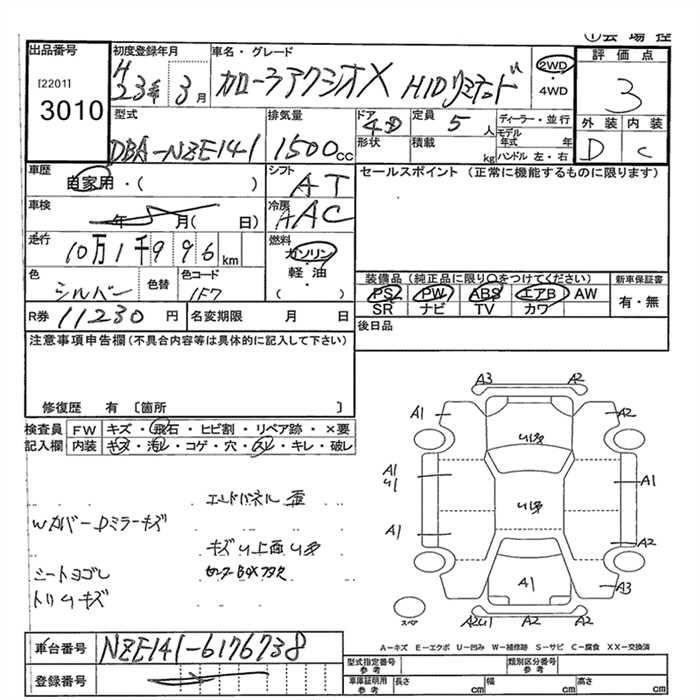 ①会場控
出品番号
[2201]
3010
初度登録年月
H23年 3月
車名・グレード
カローラアクシオX HIDリミテッド
2WD
4WD
評価点
3
外装 内装
D C
型式
DBA-NZE141
排気量
1500cc
ドア
4D
形状
定員
5人
積載
kg
ディーラー・並行
モデル年式 年
ハンドル 左・右
車歴
自家用・( )
シフト
AT
セールスポイント(正常に機能するものに限ります)
車検
年 月( 日)
冷房
AAC
走行
10万1千996km
燃料
ガソリン
軽・油
( )
色
シルバー
色替
色コード
1F7
装備品(純正品に限り○をつけてください)
PS PW ABS エアB AW
SR ナビ TV カワ
新車保証書
有・無
R券 11230円
名変期限 月 日
後日品
注意事項申告欄(不具合内容等は具体的に記入して下さい)
修復歴 有 〔箇所 〕
検査員記入欄
FW キズ・飛石・ヒビ割・リペア跡・×要
内装 キズ・汚レ・コゲ・穴・スレ・キレ・破レ
エンドパネル歪
WカバーDミラーキズ
キズU上面U多
シートヨゴレ
トリムキズ
A3 A2
A1 A2
U多
A1
U1
A1
U多
A1 A2
A1 A3
A2U1 A2 A2
スペア
A-キズ E-エクボ U-凹み W-補修跡 S-サビ C-腐食 XX-交換済
車台番号 NZE141-6176738
登録番号
型式指定番号 参考
類別区分番号 参考
車庫証明用 参考 長さ cm 幅 cm 高さ cm